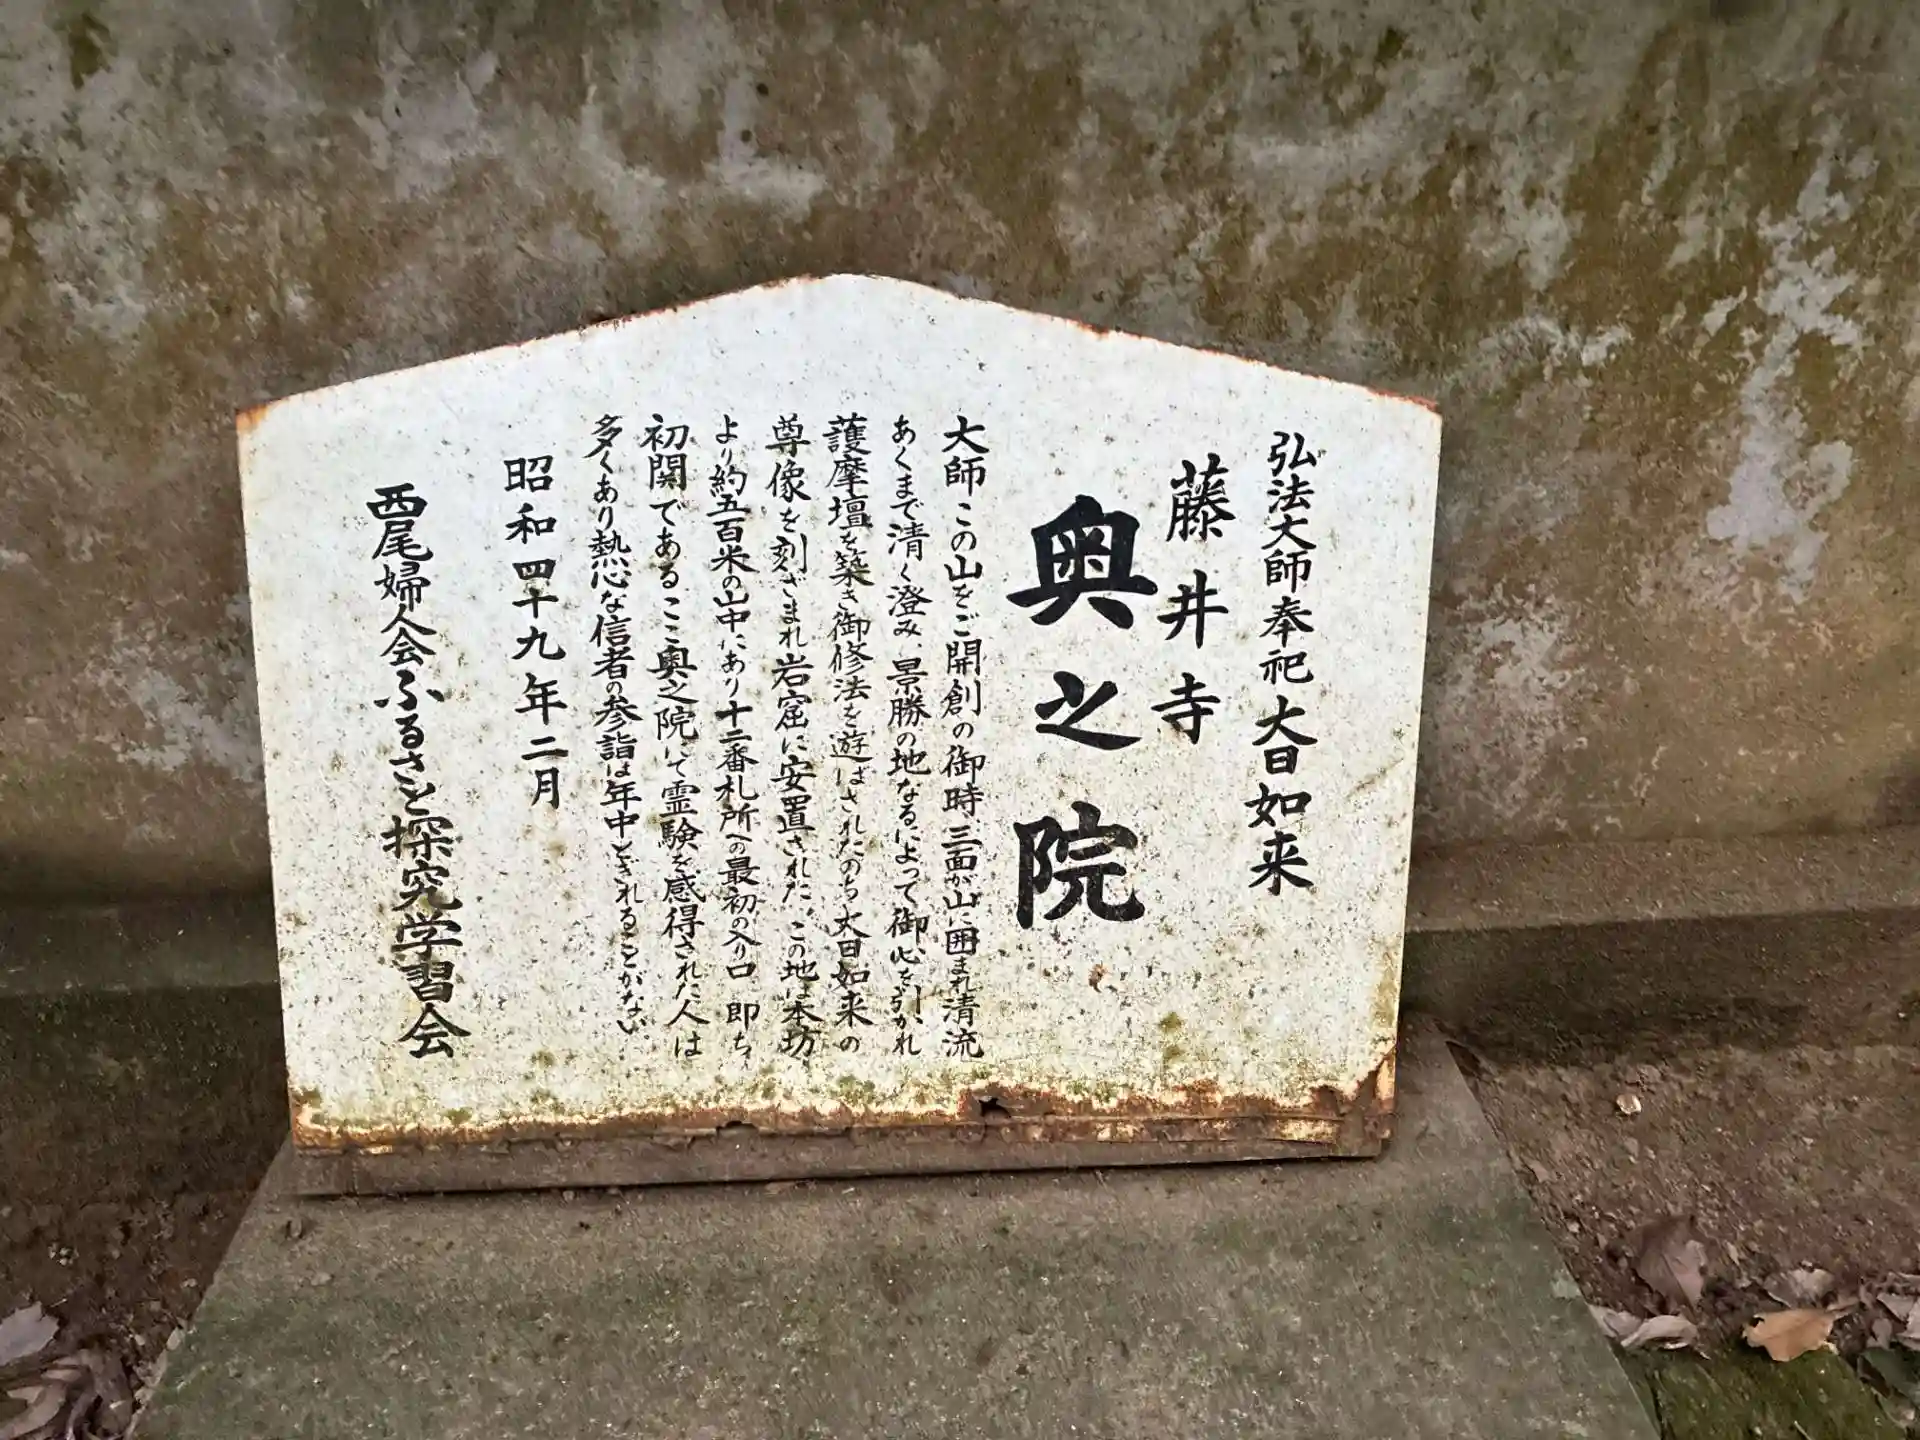 弘法大師奉祀大日如来
藤井寺
奥之院
大師この山をご開創の御時、三面が山に囲まれ清流
あくまで清く澄み、景勝の地なるによって御心を引かれ
護摩壇を築き御修法を遊ばされたのち大日如来の
尊像を刻ざまれ岩窟に安置された、この地は本坊
より約五百米の山中にあり十二番札所への最初の入り口、即ち
初関であるここ奥之院にて霊験を感得された人は
多くあり熱心な信者の参詣は年中とぎれることがない
昭和四十九年二月
西尾婦人会ふるさと探究学習会